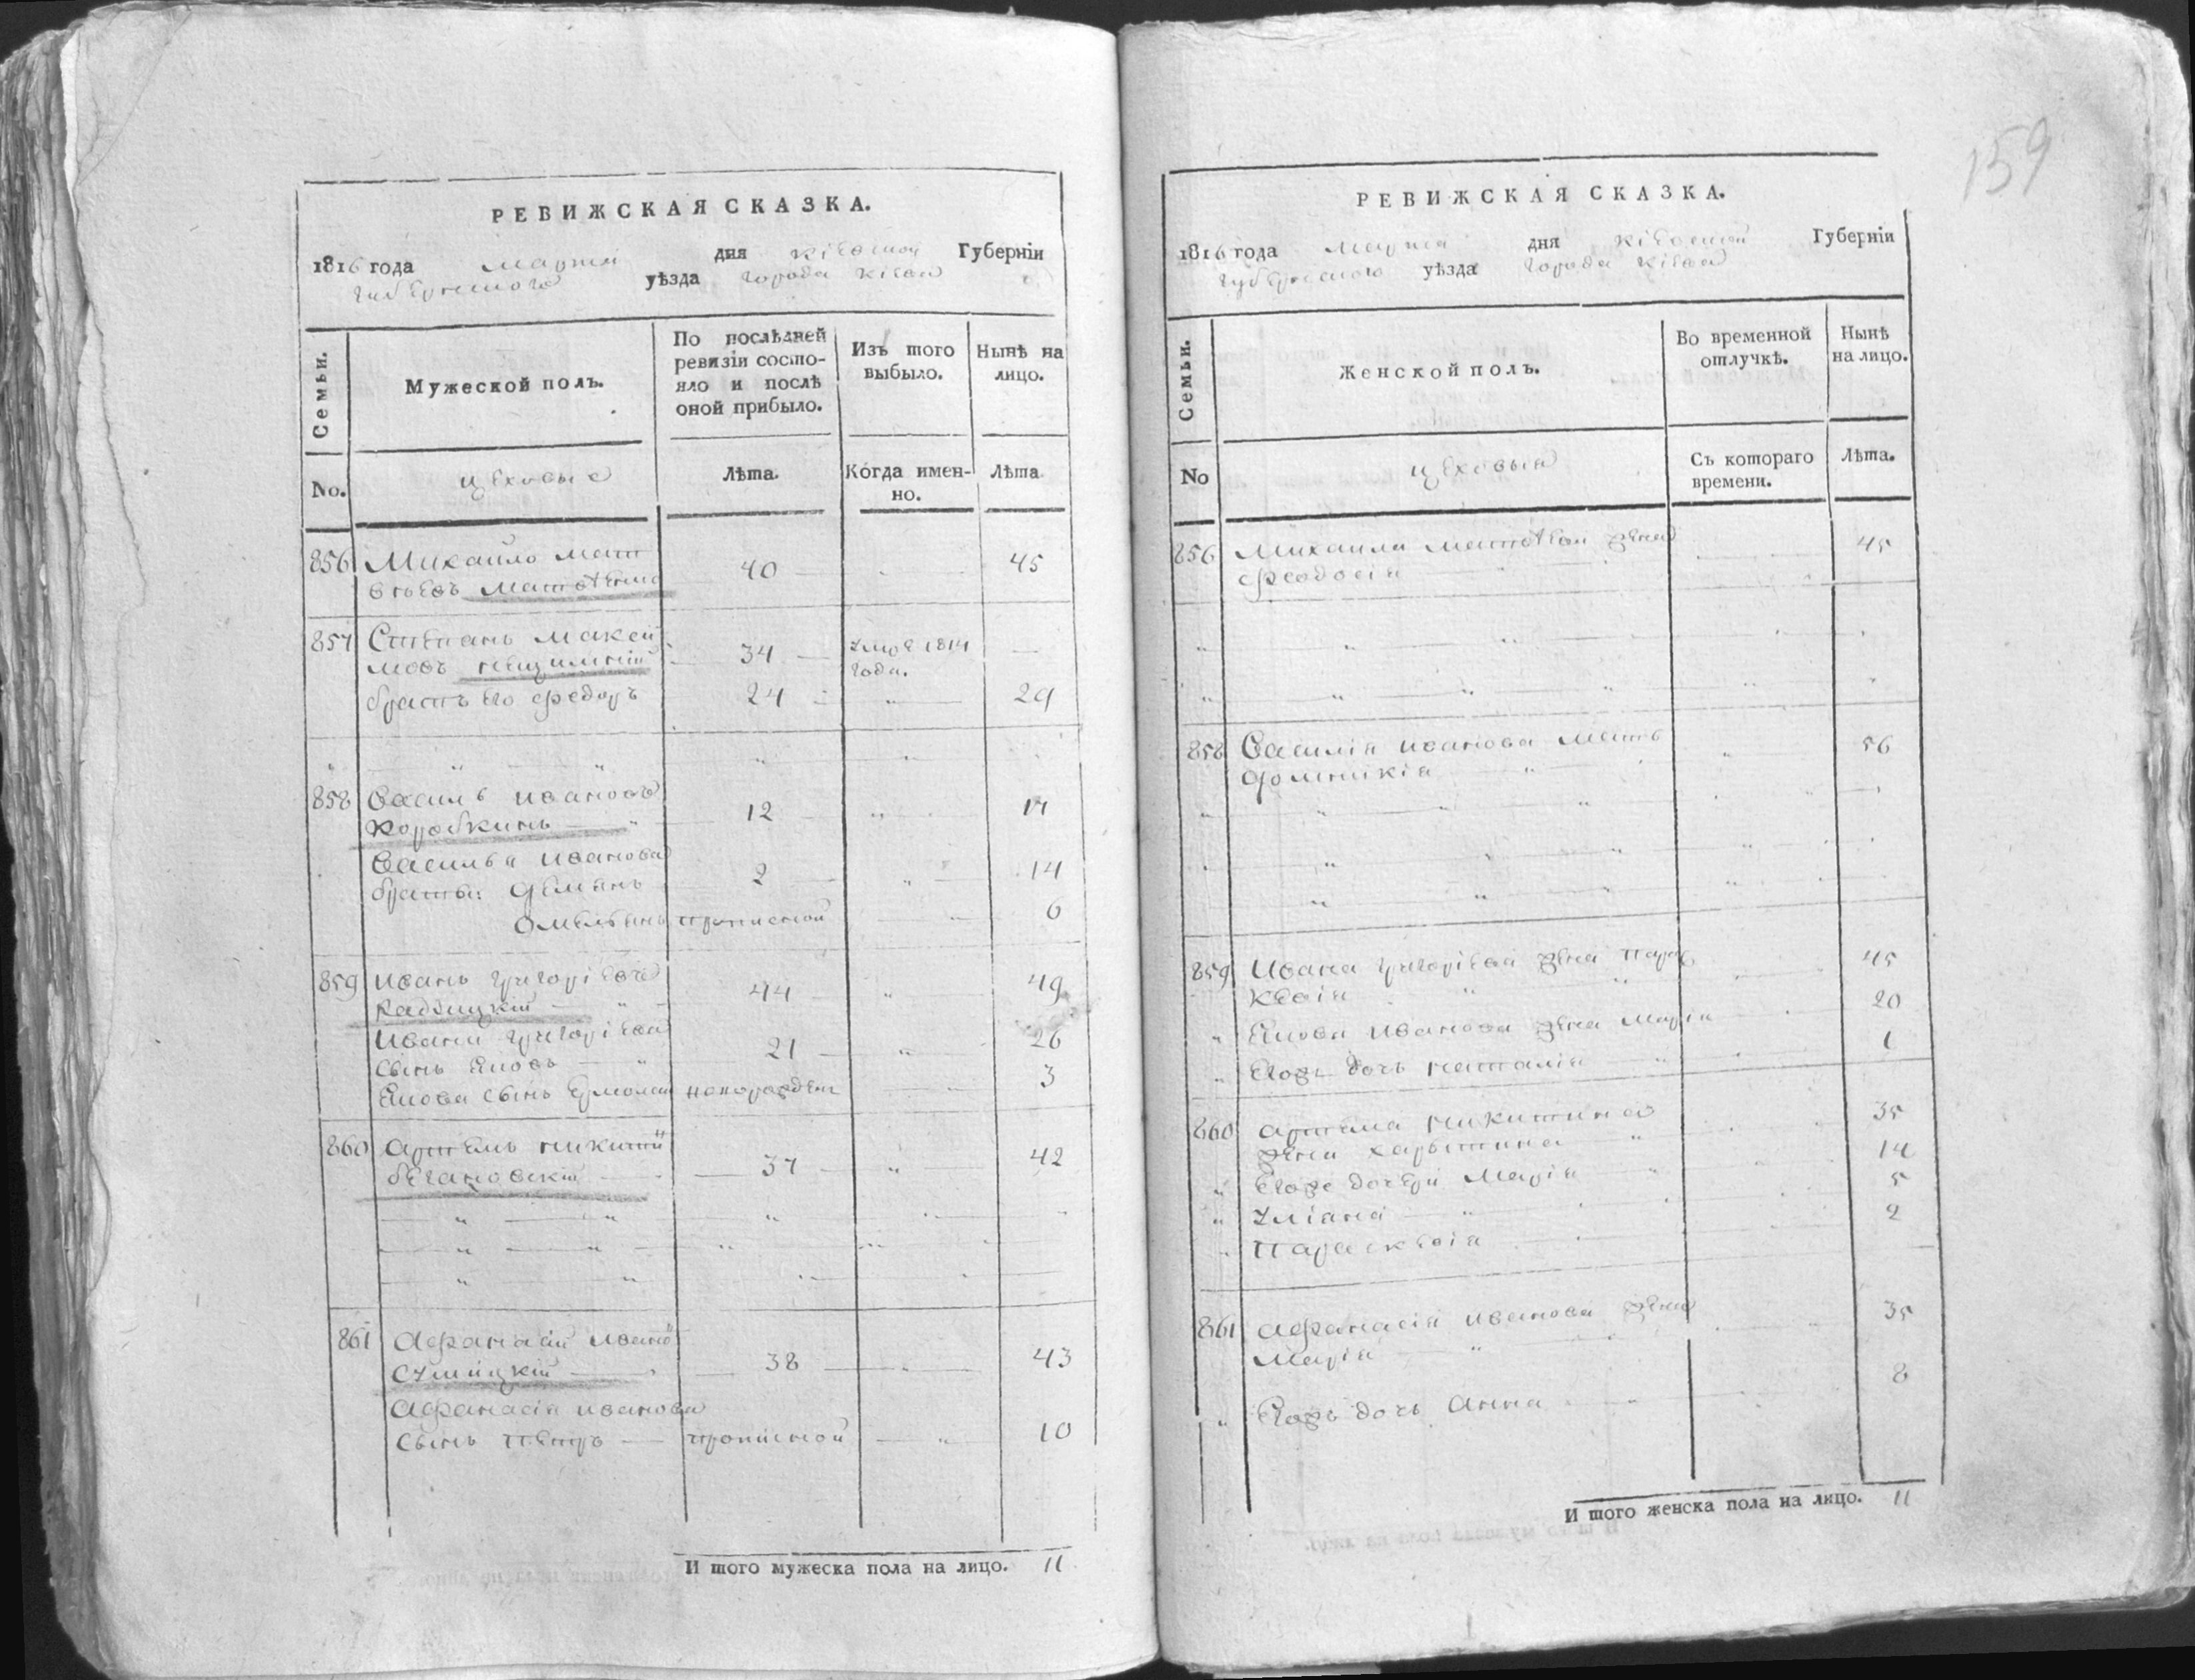 159
РЕВИЖСКАЯ СКАЗКА.
1816 года марта дня Кіевской Губерніи
губернского уѣзда города Кіева
Семьи.
Мужеской полъ.
По послѣдней ревизіи состояло и послѣ оной прибыло.
Изъ того выбыло.
Нынѣ на лицо.
No.
цеховые
Лѣта.
Когда именно.
Лѣта
856 Михайло Мат
вѣевъ 40 45
857 Степанъ Макси
мовъ 34 1814 года. —
братъ его Федоръ 24 29
858 Василь Ивановъ
Коробкинъ 12 17
Василья Иванова
братья: Демянъ 2 14
Омельянъ прописной 6
859 Иванъ Григоріевъ
Радзицкій 44 49
Ивана Григоріева
сынъ Яковъ 21 26
Якова сынъ Ермолай новорожден 3
860 Артемъ Никити
бегановскій 37 42
861 Афанасій Ивано
38 43
Афанасія Иванова
сынъ Петръ прописной 10
И того мужеска пола на лицо. 11
РЕВИЖСКАЯ СКАЗКА.
1816 года марта дня Кіевской Губерніи
губернского уѣзда города Кіева
Семьи.
Женской полъ.
Во временной отлучкѣ.
Нынѣ на лицо.
No
цеховыя
Съ котораго времени.
Лѣта.
856 Михайла Матвѣева жена
Феодосія 45
858 Василія Иванова мать
Домникія 56
859 Ивана Григоріева жена Парас
кевія 45
Якова Иванова жена Марія 20
Егожъ дочь Наталія 1
860 Артема Никитина
жена Харытина 35
Егоже дочери Марія 14
Уліана 5
Параскевія 2
861 Афанасія Иванова жена
Марія 35
Егожъ дочь Анна 8
И того женска пола на лицо. 11